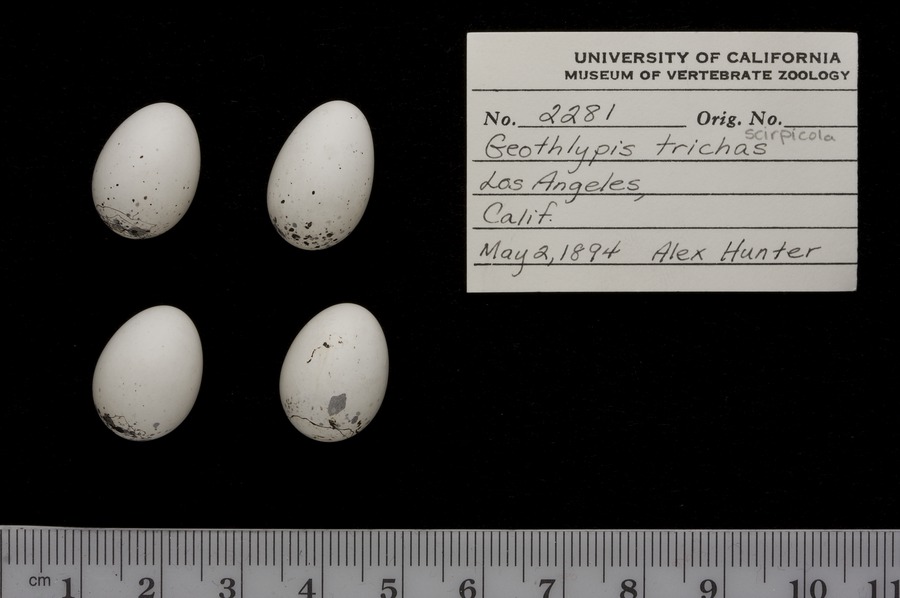 UNIVERSITY OF CALIFORNIA
MUSEUM OF VERTEBRATE ZOOLOGY
No. 2281 Orig. No.
scirpicola
Geothlypis trichas
Los Angeles,
Calif.
May 2, 1894 Alex Hunter
cm 1 2 3 4 5 6 7 8 9 10 11